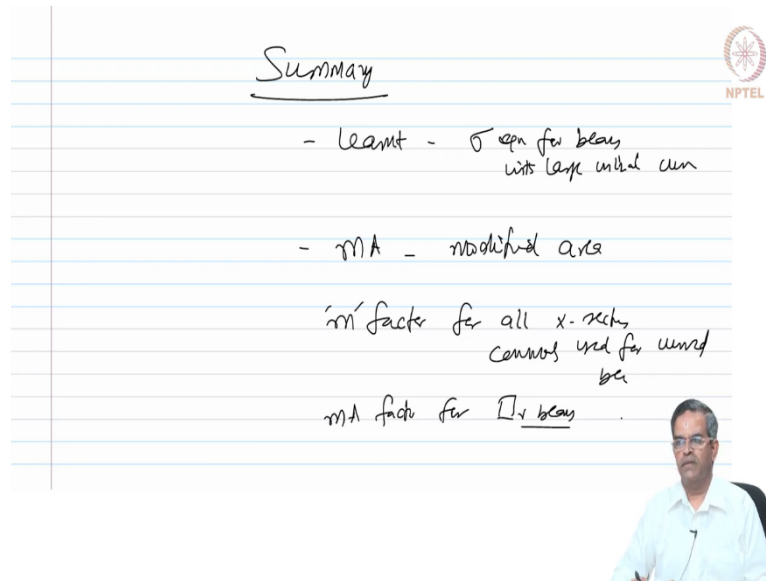 Summary
NPTEL
- learnt - σ eqn for beams
with large initial curv
- mA - modified area
'm' factor for all x-sections
cannot used for curved
be
mA factor for □r beams